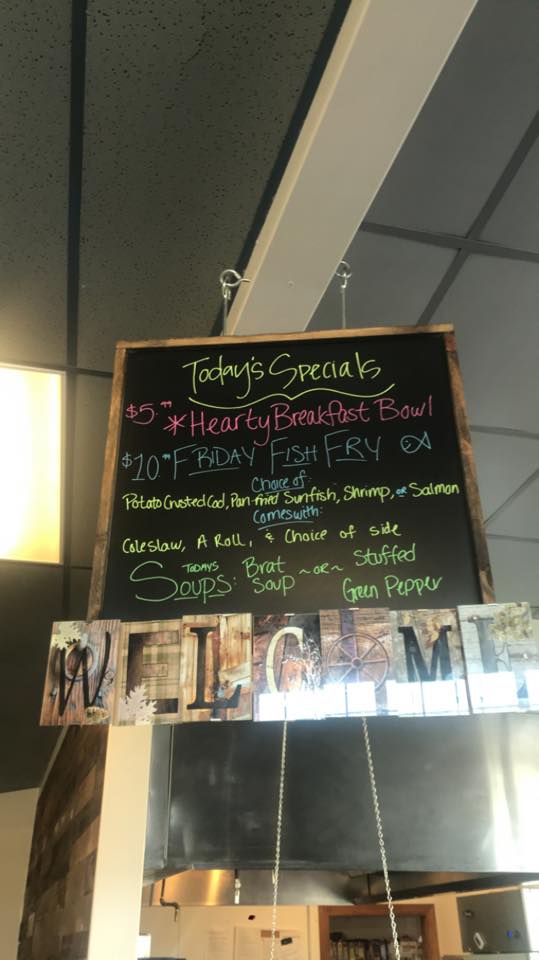 Today's Specials
$5.99 *Hearty Breakfast Bowl
$10.99 FRIDAY FISH FRY
Choice of:
Potato Crusted Cod, Pan-fried Sunfish, Shrimp, or Salmon
Comes with:
Coleslaw, A Roll, & Choice of side
TODAYS
SOUPS: Brat Soup ~OR~ Stuffed Green Pepper
WELCOME